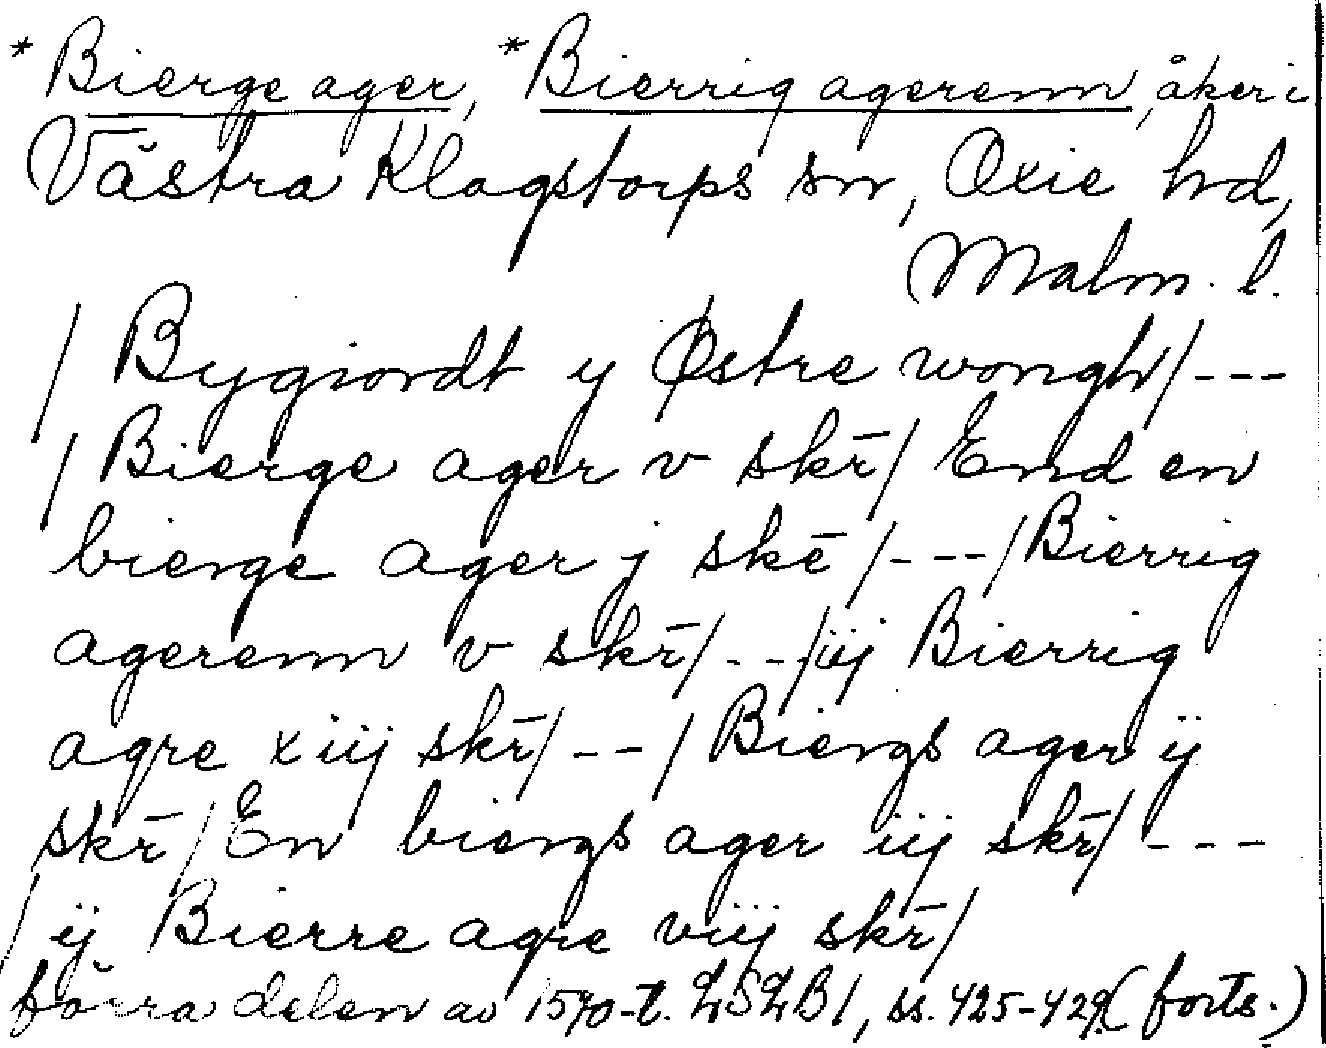 *Bierge ager, *Bierrig agerenn, åker i
Västra Klagstorps sn, Oxie hd,
Malm. l.
/ Bygiordt y Østre wongh/ ---
/ Bierge ager v skr̄/ End en
bierge ager j skē /---/ Bierrig
agerenn v skr̄/ --/iij Bierrig
agre xiij skr̄/ -- / Biergs ager ij
skr̄/ En biergs ager iij skr̄/ ---
/ ij Bierre agre viij skr̄/
förra delen av 1570-t. LSLB1, ss. 425-429 (forts.)